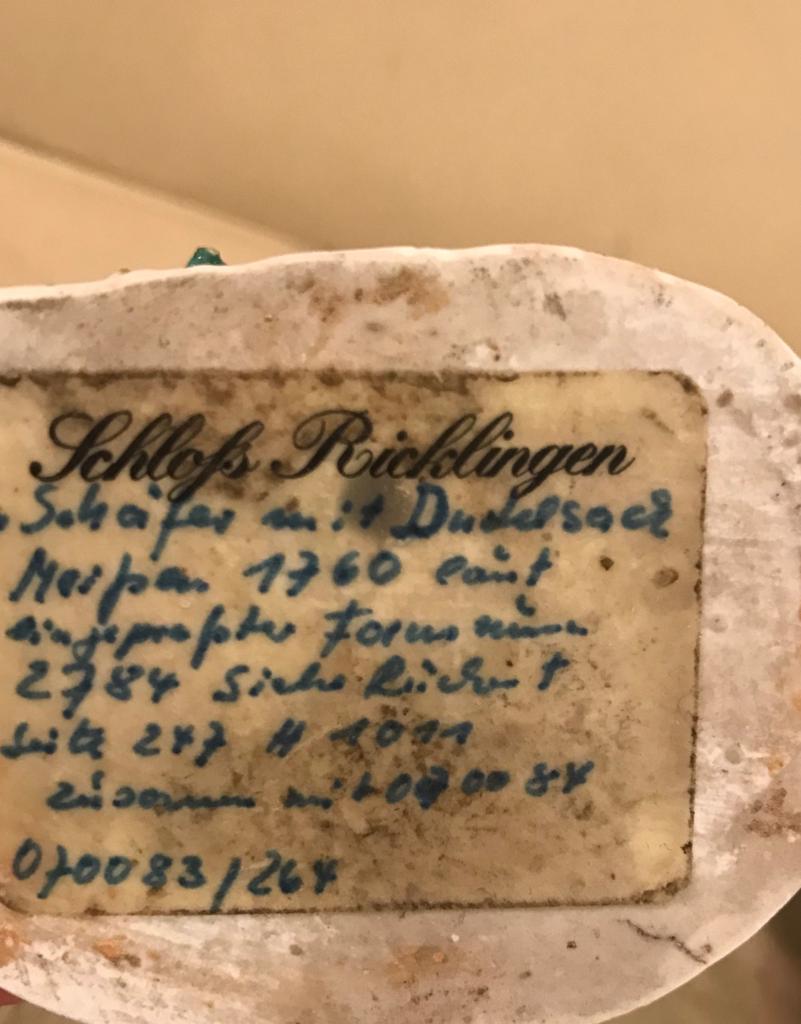 Schloß Ricklingen
Schäfer mit Dudelsack
Meißen 1760 laut
eingepreßter Formnüm
2784 Siehe Rückert
Seite 247 #1011
züsammen mit 070084
070083/264